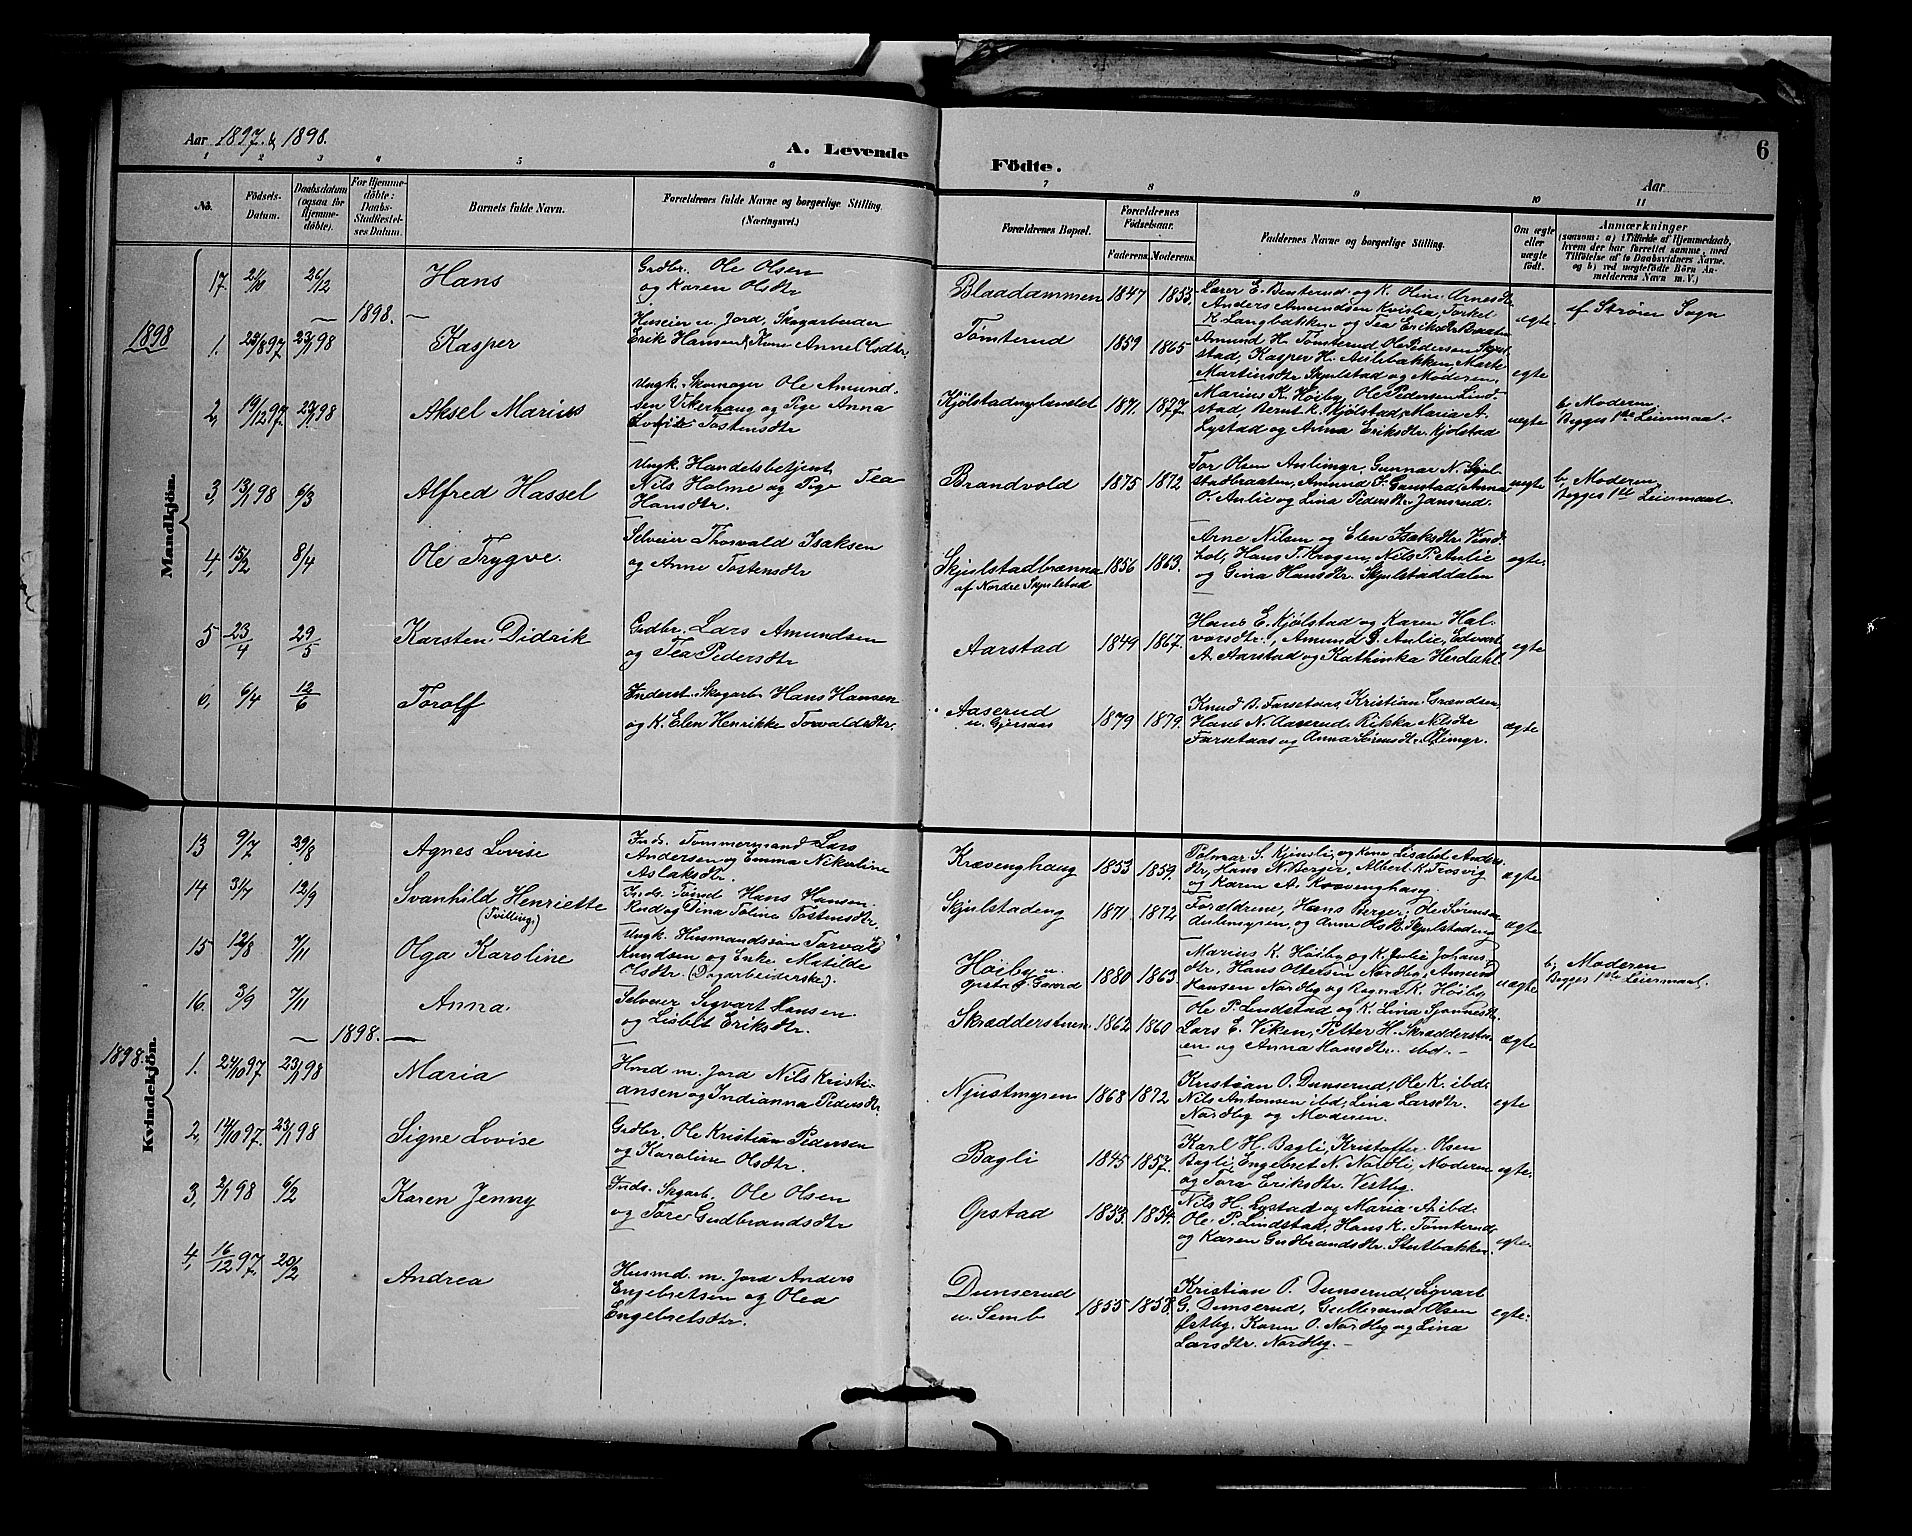 Aar 1897 & 1898.
A. Levende
Födte.
6
Aar
1 2 3 4 5 6 7 8 9 10 11
No.
Födsels-
Datum.
Daabsdatum
(ogsaa for
Hjemme-
döbte).
For Hjemme-
döbte:
Daabs-
Stadfæstel-
ses Datum.
Barnets fulde Navn.
Forældrenes fulde Navne og borgerlige Stilling.
(Næringsvei.)
Forældrenes Bopæl.
Forældrenes
Födselsaar.
Faderens. Moderens.
Faddernes Navne og borgerlige Stilling.
Om ægte
eller
uægte
födt.
Anmærkninger
(saasom: a) i Tilfælde af Hjemmedaab,
hvem der har forrettet samme, med
Tilföielse af to Daabsvidners Navne.
og b) ved uægtefödte Börn An-
melderens Navn m. V.)
Mandkjön.
17. 21/10 26/12 Hans
Grdbr. Ole Olsen
og Karen Olsdtr
Blaadammen 1847 1853.
Lærer E. Benterud og K. Oline Arnesdtr
Anders Amundsen Kvislia, Torkel
K. Langbakken og Tea Eriksdtr Braaten
ægte
af Ström Sogn
— 1898. —
1898
1. 25/8 97 23/1 98 Kasper
Huseier u. Jord, Skogarbeider
Erik Hansen & Kone Anne Olsdtr.
Tömterud 1859 1865
Amund H. Tömterud Ole Pedersen Skjul-
stad, Kasper H. Aulibakken, Marte
Martinsdtr Skjulstad og Moderen.
egte
2, 19/12 97. 23/1 98 Aksel Marius
Ungk. Skomager Ole Amund-
sen Vikerhaug og Pige Anna
Lovise Tostensdtr
Kjölstadnylandet 1871. 1877.
Marius K. Höiby, Ole Pedersen Lind-
stad, Bernt K. Kjölstad, Maria A.
Lystad og Anna Eriksdtr Kjölstad
uegte
b, Moderen,
Begges 1ste Leiermaal.
3, 13/1 98 6/3 Alfred Hassel
Ungk. Handelsbetjent
Nils Holme og Pige Tea
Hansdtr.
Brandvold 1875 1872
Tor Olsen Aulimgr, Gunnar N. Skjul-
stadbraaten, Amund K. Gaustad, Anna
O. Aulie og Lina Pedersdtr Jansrud.
uegte
b, Moderen,
Begges 1ste Leiermaal.
4, 15/2 8/4 Ole Trygve.
Selveier Thorvald Isaksen
og Anne Tostensdtr
Skjulstadbrænna
af Nordre Skjulstad
1856 1863.
Arne Nilsen og Elen Isaksdtr Vind-
hol, Hans T. Krogen, Nils P. Aulie
og Gina Hansdtr. Skjulstaddalen
egte.
5 23/4 29/5 Karsten Didrik
Grdbr. Lars Amundsen
og Tea Pedersdtr
Aarstad 1849 1867.
Hans E. Kjölstad og Karen Hal-
vorsdtr., Amund G. Aulie, Edvart
A. Aarstad og Kathinka Herdahl.
egte
6, 6/4 12/6 Torolf
Inderst. Skogarb Hans Hansen
og K. Elen Henrikke Torvaldsdtr.
Aaserud
u. Gjersaas
1879 1879.
Knud B. Farsetaas, Kristian Grænden,
Hans N. Aaserud, Rikka Nilsdtr
Farsetaas og Anna Sörensdtr. Alimgr.
ægte
Kvindekjön.
13 9/7 29/8 Agnes Lovise
Inds. Tömmermand Lars
Andersen og Emma Nikoline
Aslaksdtr.
Krævenghaug 1853 1859.
Tolmar S. Kjensli og Kone Lisabet Anders-
dtr, Hans N. Berger, Albert K. Trosvig
og Karen A. Krævenghaug.
ægte
14 31/7 12/9 Svanhild Henriette
(Tvilling)
Inds. Tömd Hans Hansen
Rud og Dina Toline Tostensdtr.
Skjulstadeng 1871 1872
Forældrene, Hans Berger, Ole Sörensen
Aulimyren, og Anne Olsdtr. Skjulstadeng
ægte
15 12/8 7/11 Olga Karoline
Ungk. Husmandssön Torvald
Knudsen og Enke Matilde
Olsdtr. (Dagarbeiderske).
Höiby u.
Opstad g. Gaard
1880 1863
Marius K. Höiby og K. Julie Johans-
dtr, Hans Ottersen Nordby, Amund
Hansen Nordby og Ragna K. Höiby
uægte
b, Moderen
Begges 1ste Leiermaal.
16. 3/9 7/11 Anna.
Selveier Sigvart Hansen
og Lisbet Eriksdtr.
Skrædderstuen 1862 1860
Ole P. Lindstad og K. Lina Sjonnesdtr
Lars E. Viken, Petter H. Skrædderstu-
en og Anna Hansdtr. ibd. —
ægte
— 1898. —
1898.
1. 24/10 97 23/1 98 Maria
Hmd m. Jord Nils Kristi-
ansen og Indianna Pedersdtr.
Njustmyren 1868 1872
Kristian O. Dunserud, Ole K. ibd.
Nils Antonsen ibd, Lina Larsdtr.
Nordby og Moderen.
egte
2, 14/10 97. 23/1 98 Signe Lovise
Grdbr. Ole Kristian Pedersen
og Karoline Olsdtr.
Bagli 1845 1857.
Karl H. Bagli, Kristoffer Olsen
Bagli, Engebret N. Nordli, Moderen
og Tora Eriksdtr. Vestby.
egte.
3, 2/1 98 6/2 Karen Jenny
Inds. Skgarb. Ole Olsen
og Tore Gudbrandsdtr
Opstad 1853. 1854.
Nils H. Lystad og Maria A. ibd.
Ole P. Lindstad, Hans K. Tömterud
og Karen Gudbrandsdtr. Stutbakken
egte.
4, 16/12 97. 20/2 Andrea
Husmd. m. Jord Anders
Engebretsen og Olea
Engebretsdtr.
Dunserud
u. Semb
1855 1858.
Kristian O. Dunserud, Sigvart
G. Dunserud, Gulbrand Olsen
Östby, Karen O. Nordby og Lina
Larsdtr. Nordby. —
egte.